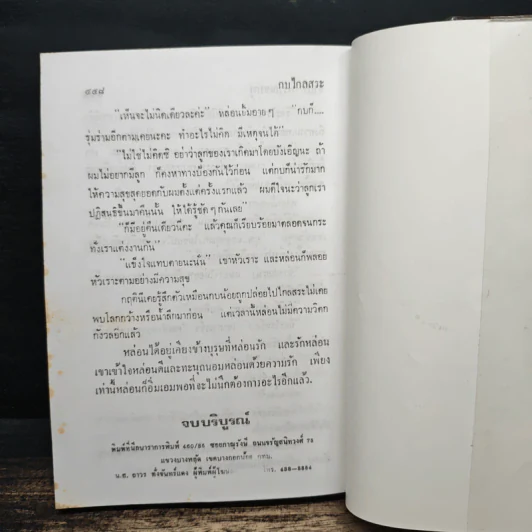 ๔๕๘
กบไกลสระ
"เห็นจะไม่นิดเดียวละค่ะ" หล่อนยิ้มอายๆ "กบก็....
ซุ่มซ่ามอีกตามเคยนะคะ ทำอะไรไม่คิด มีเหตุจนได้"
"ไม่ใช่ไม่คิดซิ อย่าว่าลูกของเราเกิดมาโดยบังเอิญนะ ถ้า
ผมไม่อยากมีลูก ก็คงหาทางป้องกันไว้ก่อน แต่กบก็น่ารักมาก
ให้ความสุขสุดยอดกับผมตั้งแต่ครั้งแรกแล้ว ผมดีใจนะว่าลูกเรา
ปฏิสนธิขึ้นมาคืนนั้น ให้ได้รู้ชัดๆ กันเลย"
"ก็มีอยู่คืนเดียวนี่คะ แล้วคุณก็เรียบร้อยมาตลอดจนกระ
ทั่งเราแต่งงานกัน"
"แข็งใจแทบตายนะนั่น" เขาหัวเราะ และหล่อนก็พลอย
หัวเราะตามอย่างมีความสุข
กฤตินีเคยรู้สึกตัวเหมือนกบน้อยถูกปล่อยไปไกลสระไม่เคย
พบโลกกว้างหรือน้ำลึกมาก่อน แต่เวลานี้หล่อนไม่มีความวิตก
กังวลอีกแล้ว
หล่อนได้อยู่เคียงข้างบุรุษที่หล่อนรัก และรักหล่อน
เขาเข้าใจหล่อนดีและทะนุถนอมหล่อนด้วยความรัก เพียง
เท่านี้หล่อนก็อิ่มเอมพอที่จะไม่นึกต้องการอะไรอีกแล้ว.
จบบริบูรณ์
พิมพ์ที่นีลนาราการพิมพ์ 460/26 ซอยภาณุรังษี ถนนจรัญสนิทวงศ์ 75
แขวงบางพลัด เขตบางกอกน้อย กทม.
น.ส. ตั้งจันทร์แดง ผู้พิมพ์ผู้โฆษณา โทร.